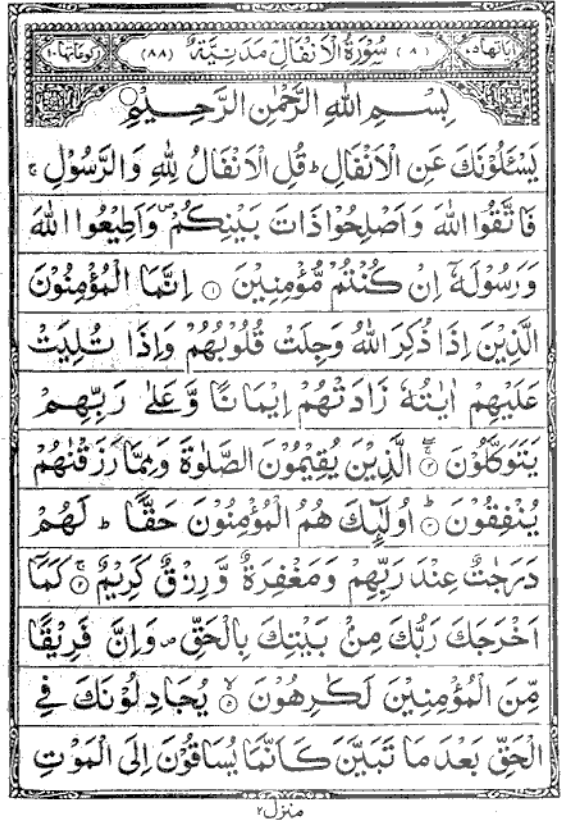 اٰیاتها ٧٥ (٨) سُوْرَةُ الْاَنْفَالِ مَدَنِيَّةٌ (٨٨) رکوعاتها ١٠
بِسْمِ اللّٰهِ الرَّحْمٰنِ الرَّحِيْمِ
يَسْـَٔلُوْنَكَ عَنِ الْاَنْفَالِ ؕ قُلِ الْاَنْفَالُ لِلّٰهِ وَالرَّسُوْلِ ۚ
فَاتَّقُوا اللّٰهَ وَاَصْلِحُوْا ذَاتَ بَيْنِكُمْ ۪ وَاَطِيْعُوا اللّٰهَ
وَرَسُوْلَهٗۤ اِنْ كُنْتُمْ مُّؤْمِنِيْنَ ۝١ اِنَّمَا الْمُؤْمِنُوْنَ
الَّذِيْنَ اِذَا ذُكِرَ اللّٰهُ وَجِلَتْ قُلُوْبُهُمْ وَاِذَا تُلِيَتْ
عَلَيْهِمْ اٰيٰتُهٗ زَادَتْهُمْ اِيْمَانًا وَّعَلٰى رَبِّهِمْ
يَتَوَكَّلُوْنَ ۝٢ الَّذِيْنَ يُقِيْمُوْنَ الصَّلٰوةَ وَمِمَّا رَزَقْنٰهُمْ
يُنْفِقُوْنَ ۝٣ؕ اُولٰٓئِكَ هُمُ الْمُؤْمِنُوْنَ حَقًّا ؕ لَهُمْ
دَرَجٰتٌ عِنْدَ رَبِّهِمْ وَمَغْفِرَةٌ وَّرِزْقٌ كَرِيْمٌ ۝٤ۚ كَمَاۤ
اَخْرَجَكَ رَبُّكَ مِنْۢ بَيْتِكَ بِالْحَقِّ ۪ وَاِنَّ فَرِيْقًا
مِّنَ الْمُؤْمِنِيْنَ لَكٰرِهُوْنَ ۝٥ۙ يُجَادِلُوْنَكَ فِى
الْحَقِّ بَعْدَ مَا تَبَيَّنَ كَاَنَّمَا يُسَاقُوْنَ اِلَى الْمَوْتِ
منزل ٢